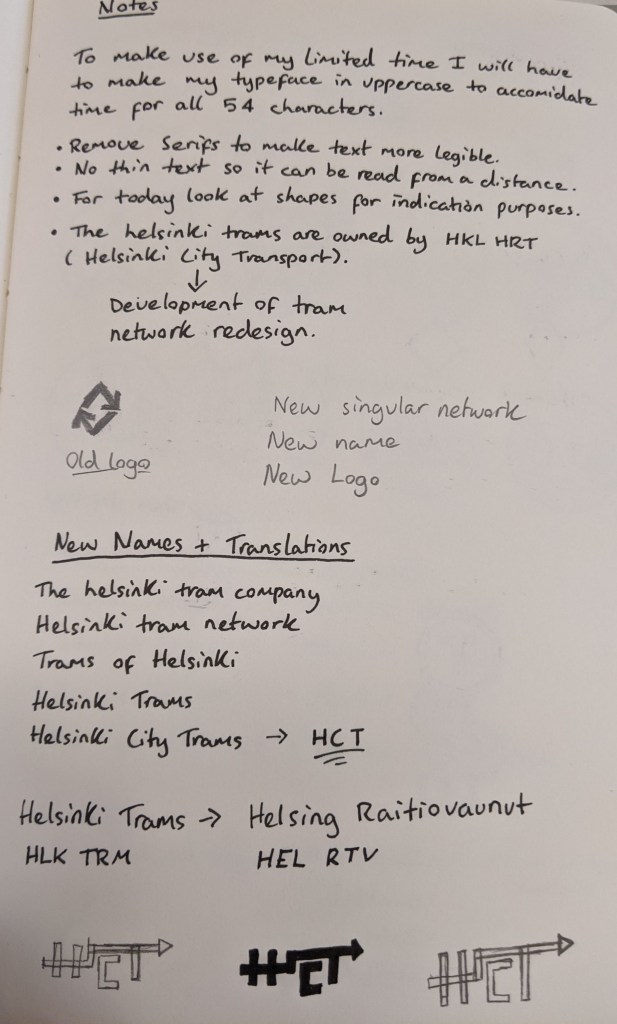 Notes
To make use of my limited time I will have
to make my typeface in uppercase to accomidate
time for all 54 characters.
• Remove Serifs to make text more legible.
• No thin text so it can be read from a distance.
• For today look at shapes for indication purposes.
• The helsinki trams are owned by HKL HRT
( Helsinki City Transport).
Development of tram
network redesign.
Old logo
New singular network
New name
New Logo
New Names + Translations
The helsinki tram company
Helsinki tram network
Trams of Helsinki
Helsinki Trams
Helsinki City Trams → HCT
Helsinki Trams → Helsing Raitiovaunut
HLK TRM HEL RTV
HCT HCT HCT